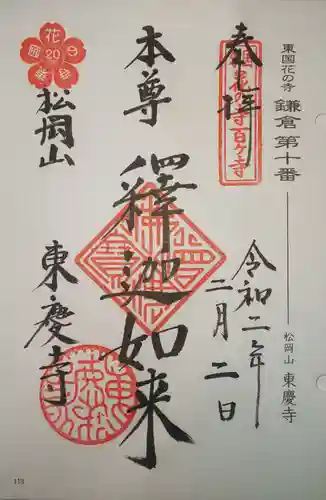 東国花の寺 鎌倉 第十番 松岡山 東慶寺
奉拝
東国花の寺百ヶ寺
令和二年
二月二日
本尊
釋迦如来
花
20
松岡山
東慶寺
113